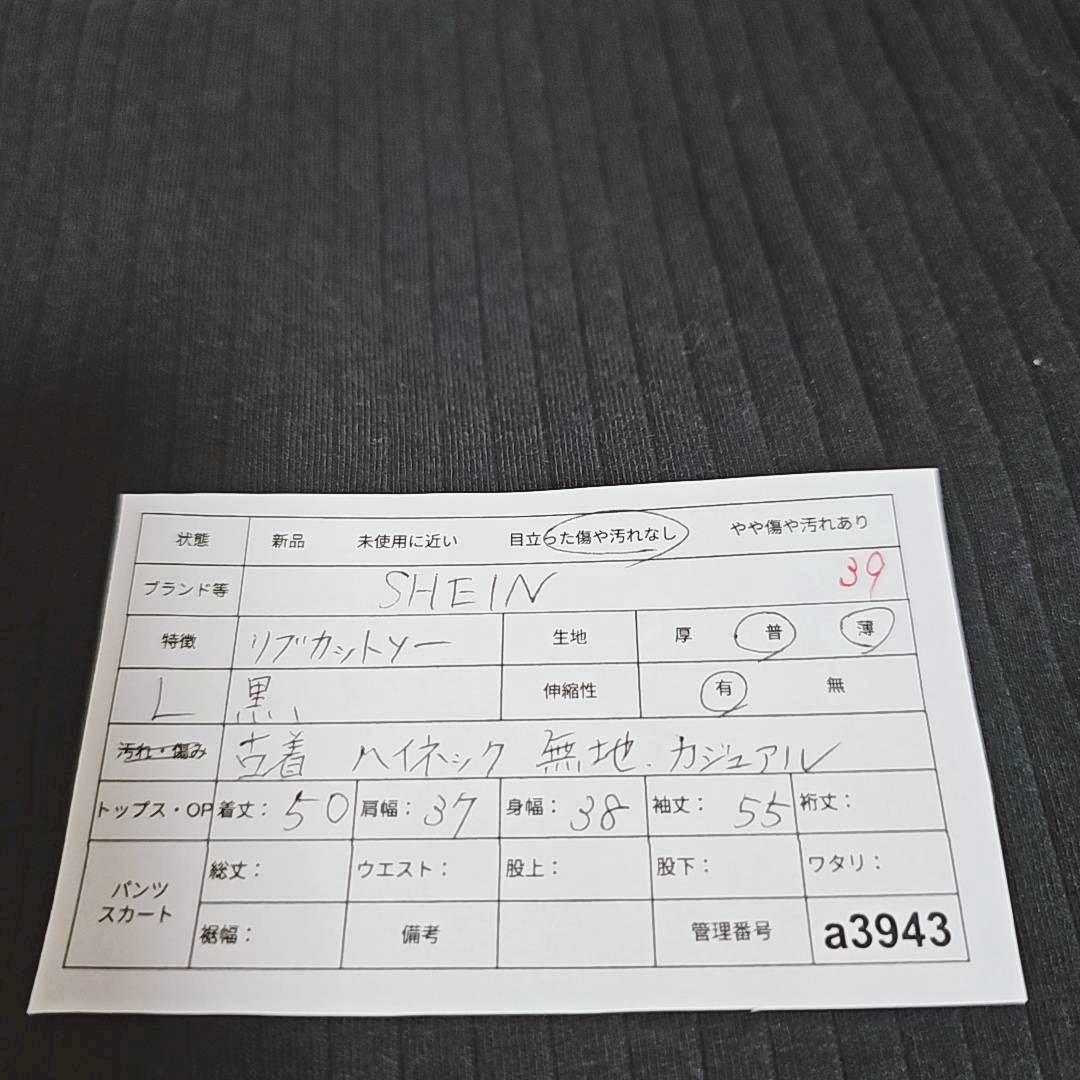 状態 新品 未使用に近い 目立った傷や汚れなし やや傷や汚れあり
ブランド等 SHEIN 39
特徴 リブカットソー 生地 厚 普 薄
L 黒 伸縮性 有 無
汚れ・傷み 古着 ハイネック 無地.カジュアル
トップス・OP 着丈: 50 肩幅: 37 身幅: 38 袖丈: 55 裄丈:
パンツ スカート 総丈: ウエスト: 股上: 股下: ワタリ:
裾幅: 備考 管理番号 a3943